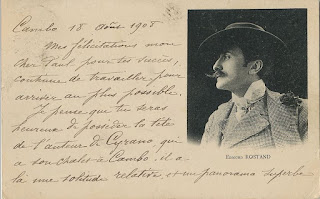 Cambo 18 Août 1908
Mes félicitations mon
cher Paul, pour tes succès,
continue de travailler pour
arriver au plus possible.
Je pense que tu seras
heureux de posséder la tête
de l'auteur de Cyrano, qui
a son chalet à Cambo. il a
là une solitude relative et un panorama superbe
EDMOND ROSTAND